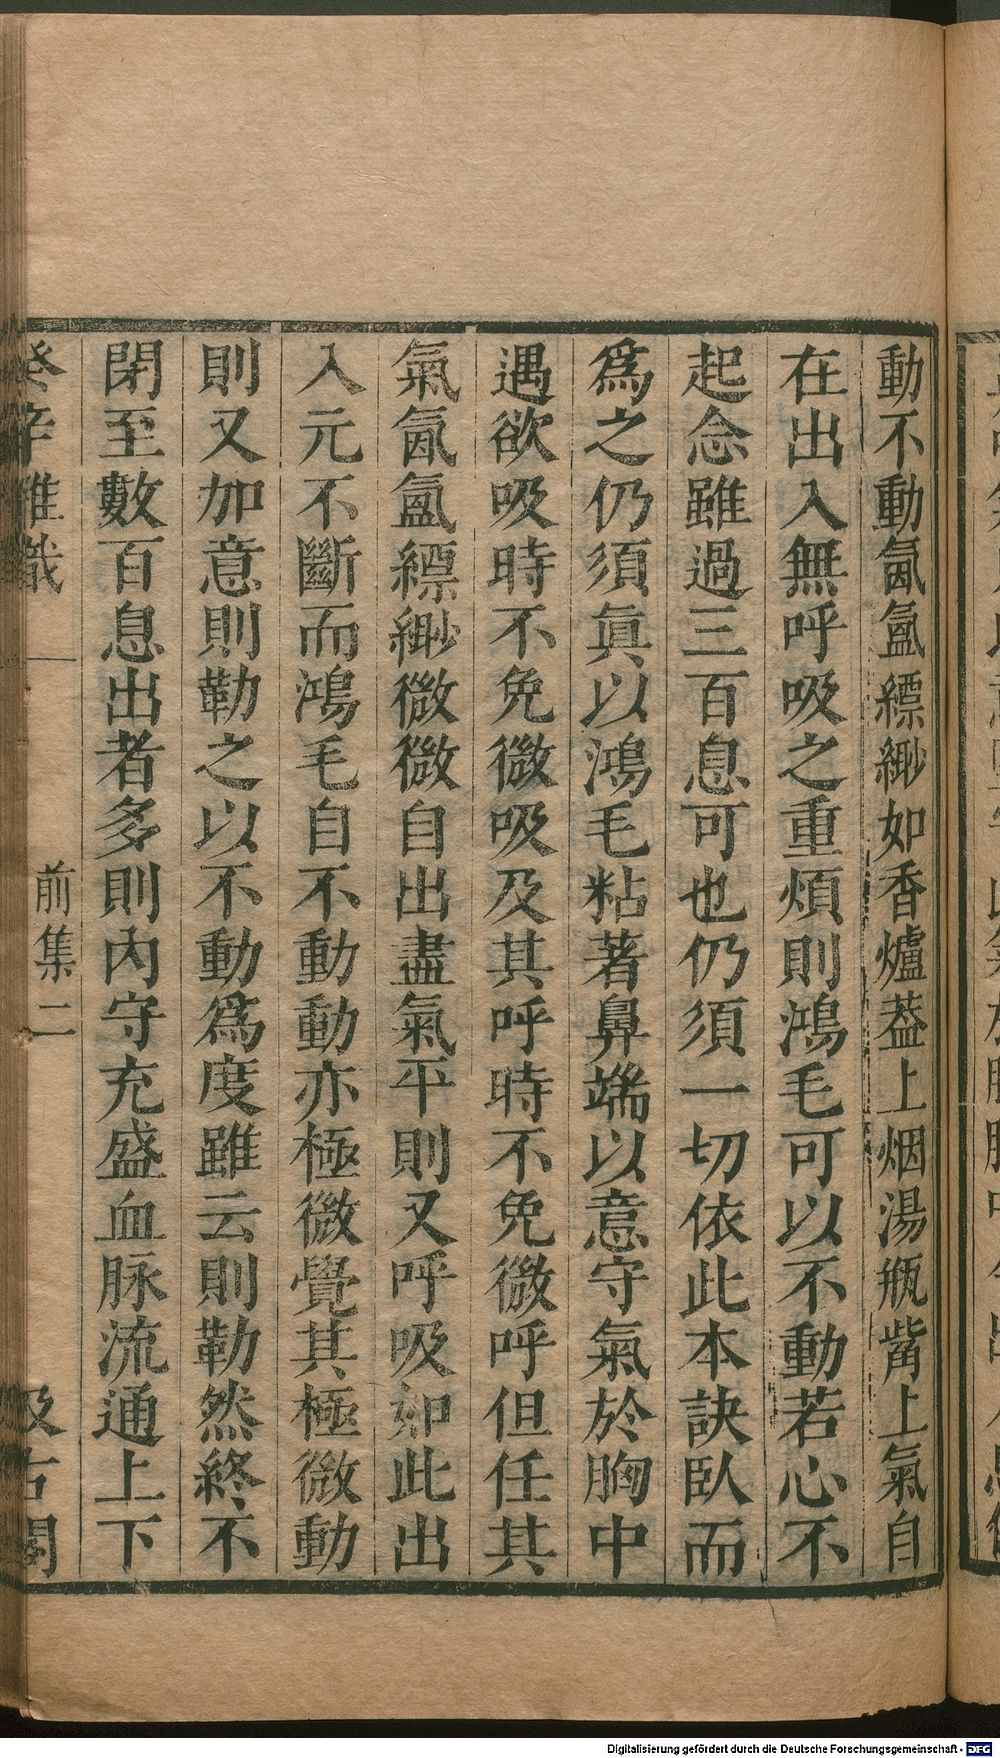 動不動氤氳縹緲如香爐葢上烟湯瓶觜上氣自
在出入無呼吸之重煩則鴻毛可以不動若心不
起念雖過三百息可也仍須一切依此本訣臥而
爲之仍須眞以鴻毛粘著鼻端以意守氣於胸中
遇欲吸時不免微吸及其呼時不免微呼但任其
氣氤氳縹緲微微自出盡氣平則又呼吸如此出
入元不斷而鴻毛自不動動亦極微覺其極微動
則又加意則勒之以不動爲度雖云則勒然終不
閉至數百息出者多則內守充盛血脉流通上下
癸辛雜識 前集二 汲古閣
Digitalisierung gefördert durch die Deutsche Forschungsgemeinschaft - DFG